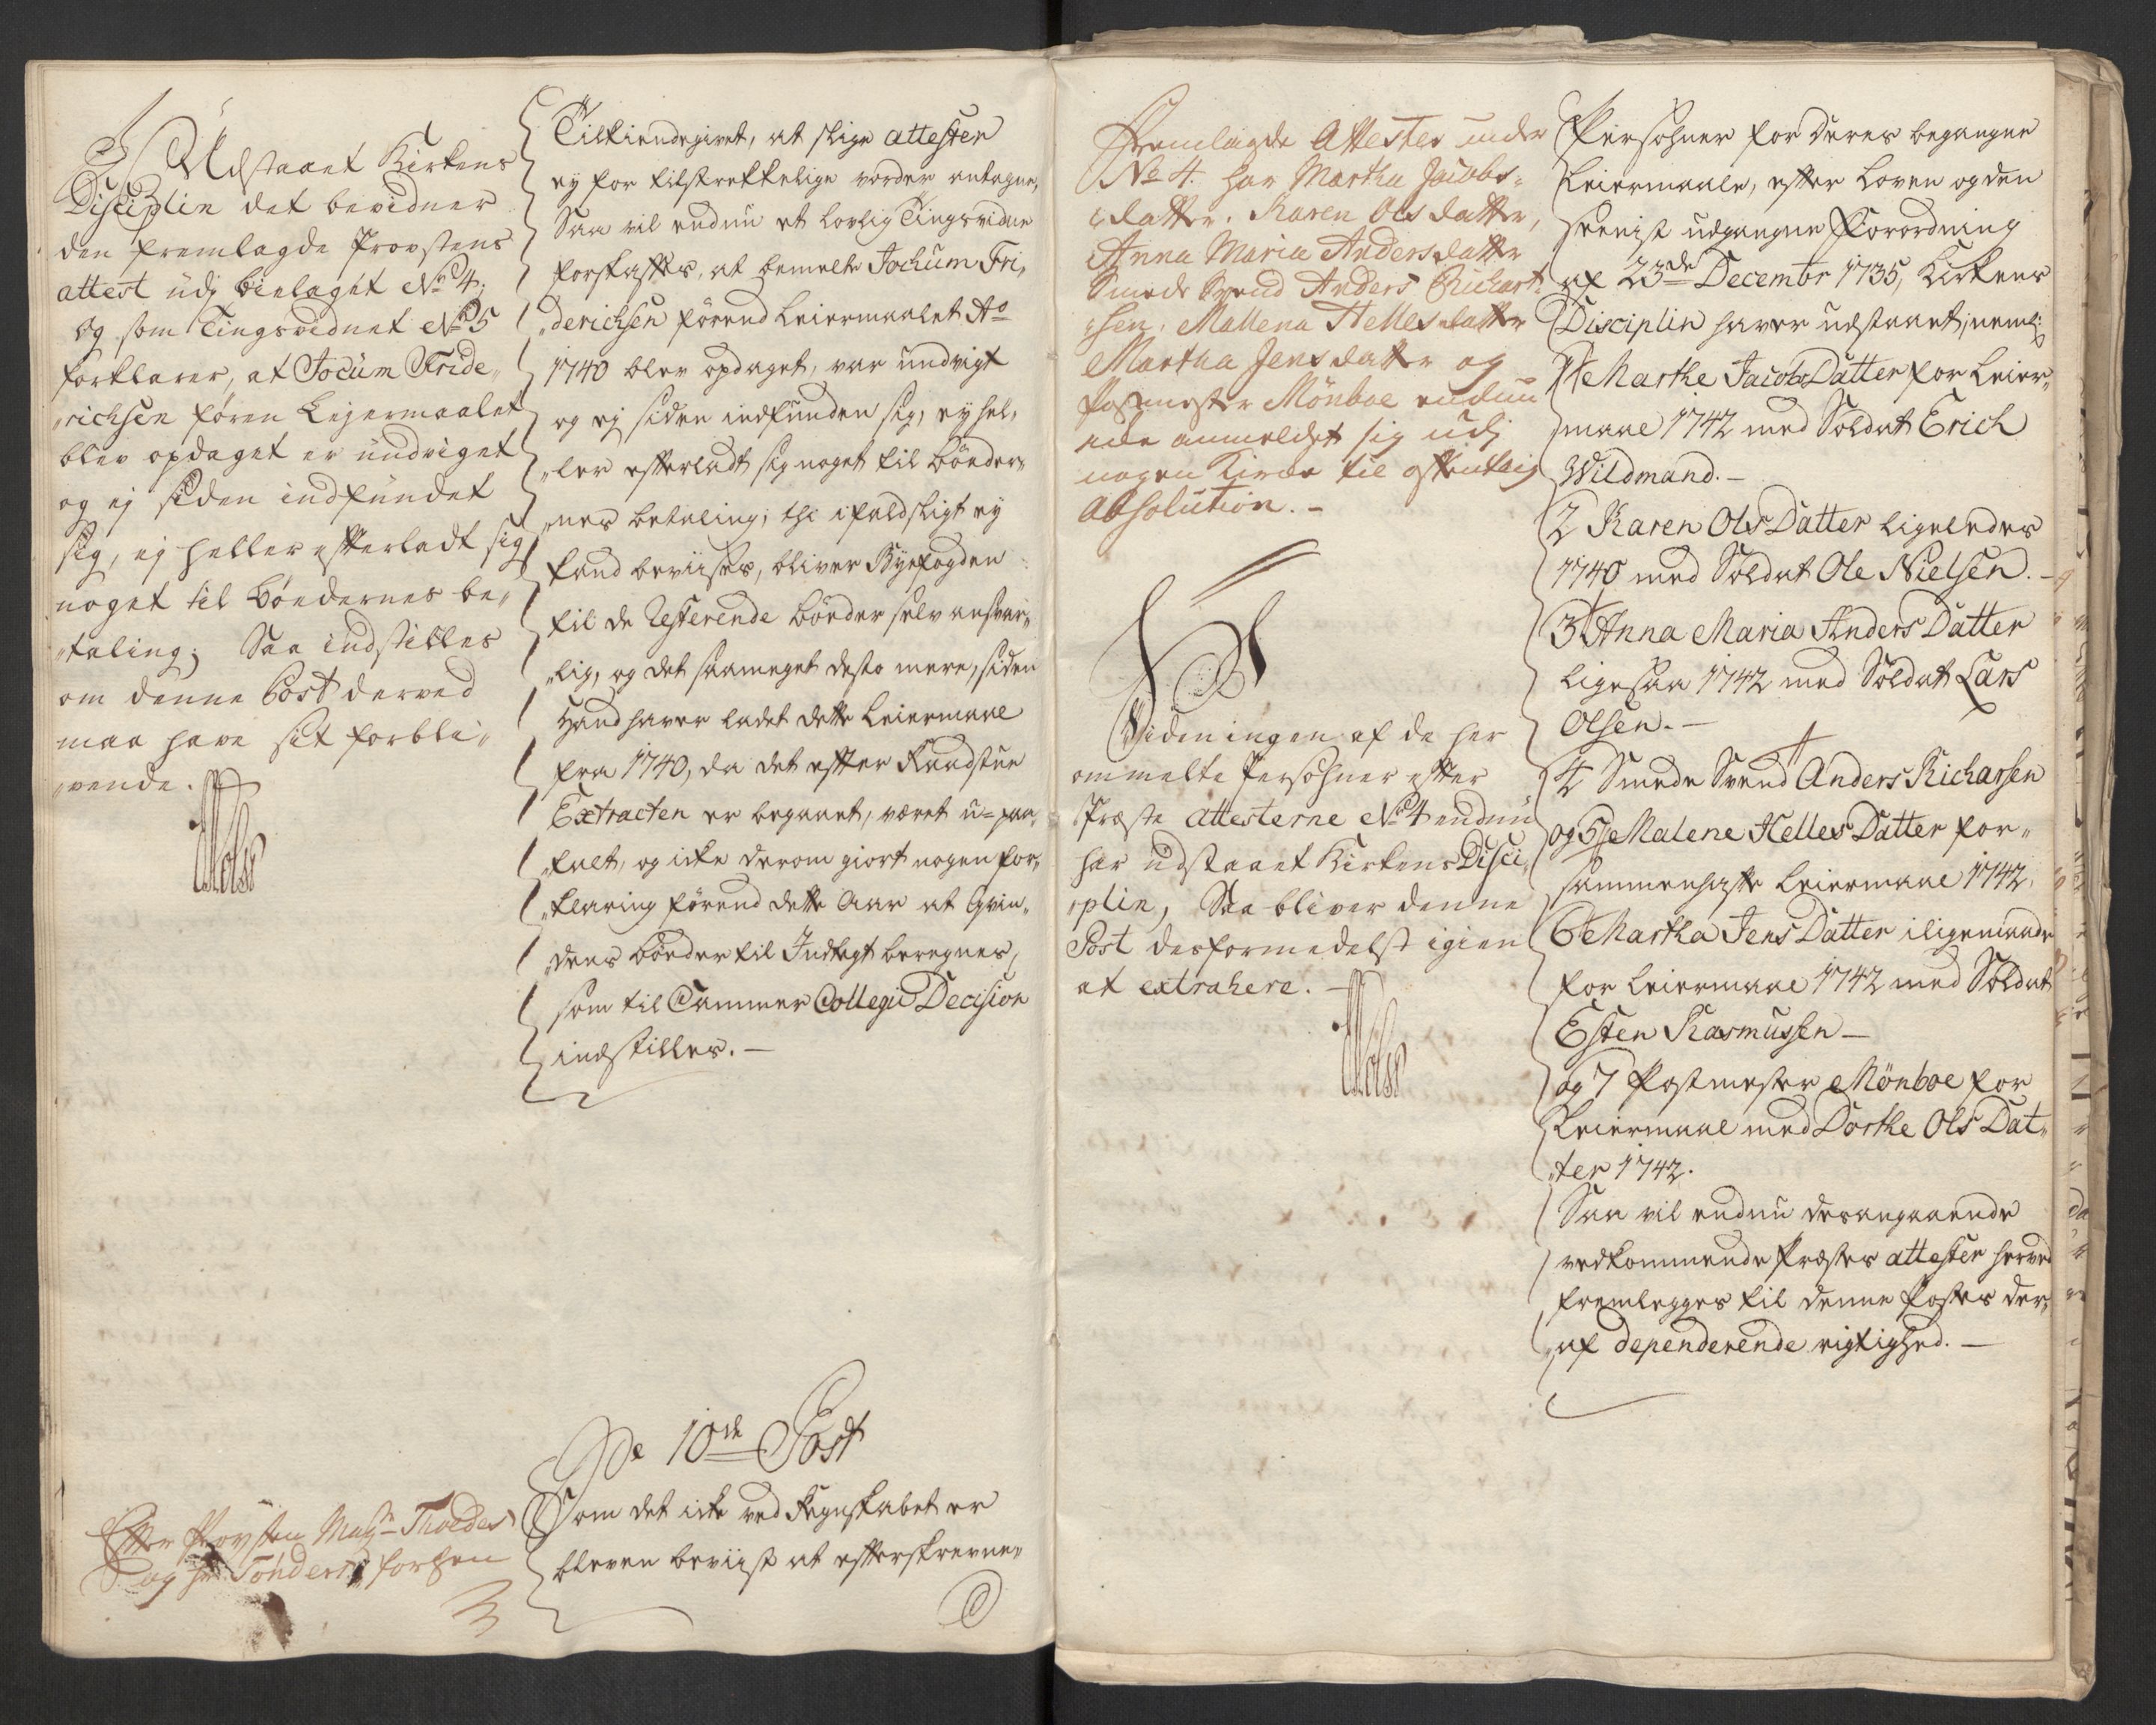 Udstaaet Kirkens
Disciplin det bevidner
den fremlagde Provstens
attest udj bielaget No 4,
og som Tingsvidnet No 5
forklarer, at Jocum Fride„
„richsen føren Lejermaalet
blev opdaget er undviget
og ej siden indfundet
sig, ej heller efterladt sig
noget til bøedernes be„
„taling; Saa indstilles
om denne Post derved
maa have sit forbli„
„vende.
Efter Provsten Mag:r Thoedes
og Hr Tønders forhen
Tilkiendegivet, at slige attester
ey for tilstrekkelige vorder antagne,
Saa vil endnu et lovlig Tingsvidne
forskaffes, at bemelte Jochum Fri„
„derichsen førend Leiermaalet Ao
1740 blev opdaget, var undvigt
og ej siden indfunden sig, ey hel„
„ler efterladt sig noget til bøeder„
„nes betaling; thi ifald sligt ey
kand beviises, bliver Byefogden
til de Resterende bøeder selv ansvar„
„lig, og det saameget desto mere, siden
Hand haver ladet dette Leiermaal
fra 1740, da det efter Raadstue
Extracten er begaaet, været u-paa„
„talt, og icke derom giort nogen for„
„klaring førend dette Aar at Qvin„
„dens bøeder til Indtegt beregnes,
som til Cammer Collegii Decision
indstilles. —
De 10de Post
Som det icke ved Regnskabet er
bleven beviist at efterskrevne„
Fremlagde Attester under
No 4. har Martha Jacobs„
„datter. Karen Olsdatter,
Anna Maria Andersdatter
Smede Svend Anders Richart„
„sen, Mallena Hellesdatter
Martha Jensdatter og
Postmester Mönboe endnu
icke anmeldet sig udj
nogen Kircke til offentlig
absolution. —
Siden ingen af de her
ommelte Persohner efter
Præste attesterne No 4 endnu
har udstaaet Kirkens Disci„
„plin, Saa bliver denne
Post desformedelst igien
at extrahere. —
Persohner for deres begangne
Leiermaale, efter Loven og den
seenist udgangne Forordning
af 23de Decembr 1735, Kirkens
Disciplin haver udstaaet; neml:
1 Marthe Jacobs Datter for Leier„
maal 1742 med Soldat Erich
Wildmand. —
2 Karen Ols Datter ligeledes
1740 med Soldat Ole Nielsen. —
3 Anna Maria Anders Datter
ligesaa 1742 med Soldat Lars
Olsen. —
4 Smede Svend Anders Richarsen
og 5 Malene Helles Datter for„
sammenhafte Leiermaal 1742,
6 Martha Jens Datter iligemaade
for Leiermaal 1742 med Soldat
Esten Rasmussen —
og 7 Postmester Mönboe for
Leiermaal med Dorthe Ols Dat„
„ter 1742.
Saa vil endnu desangaaende
vedkommende Præsters attester herved
fremlegges til denne Postes der„
„af dependerende rigtighed. —